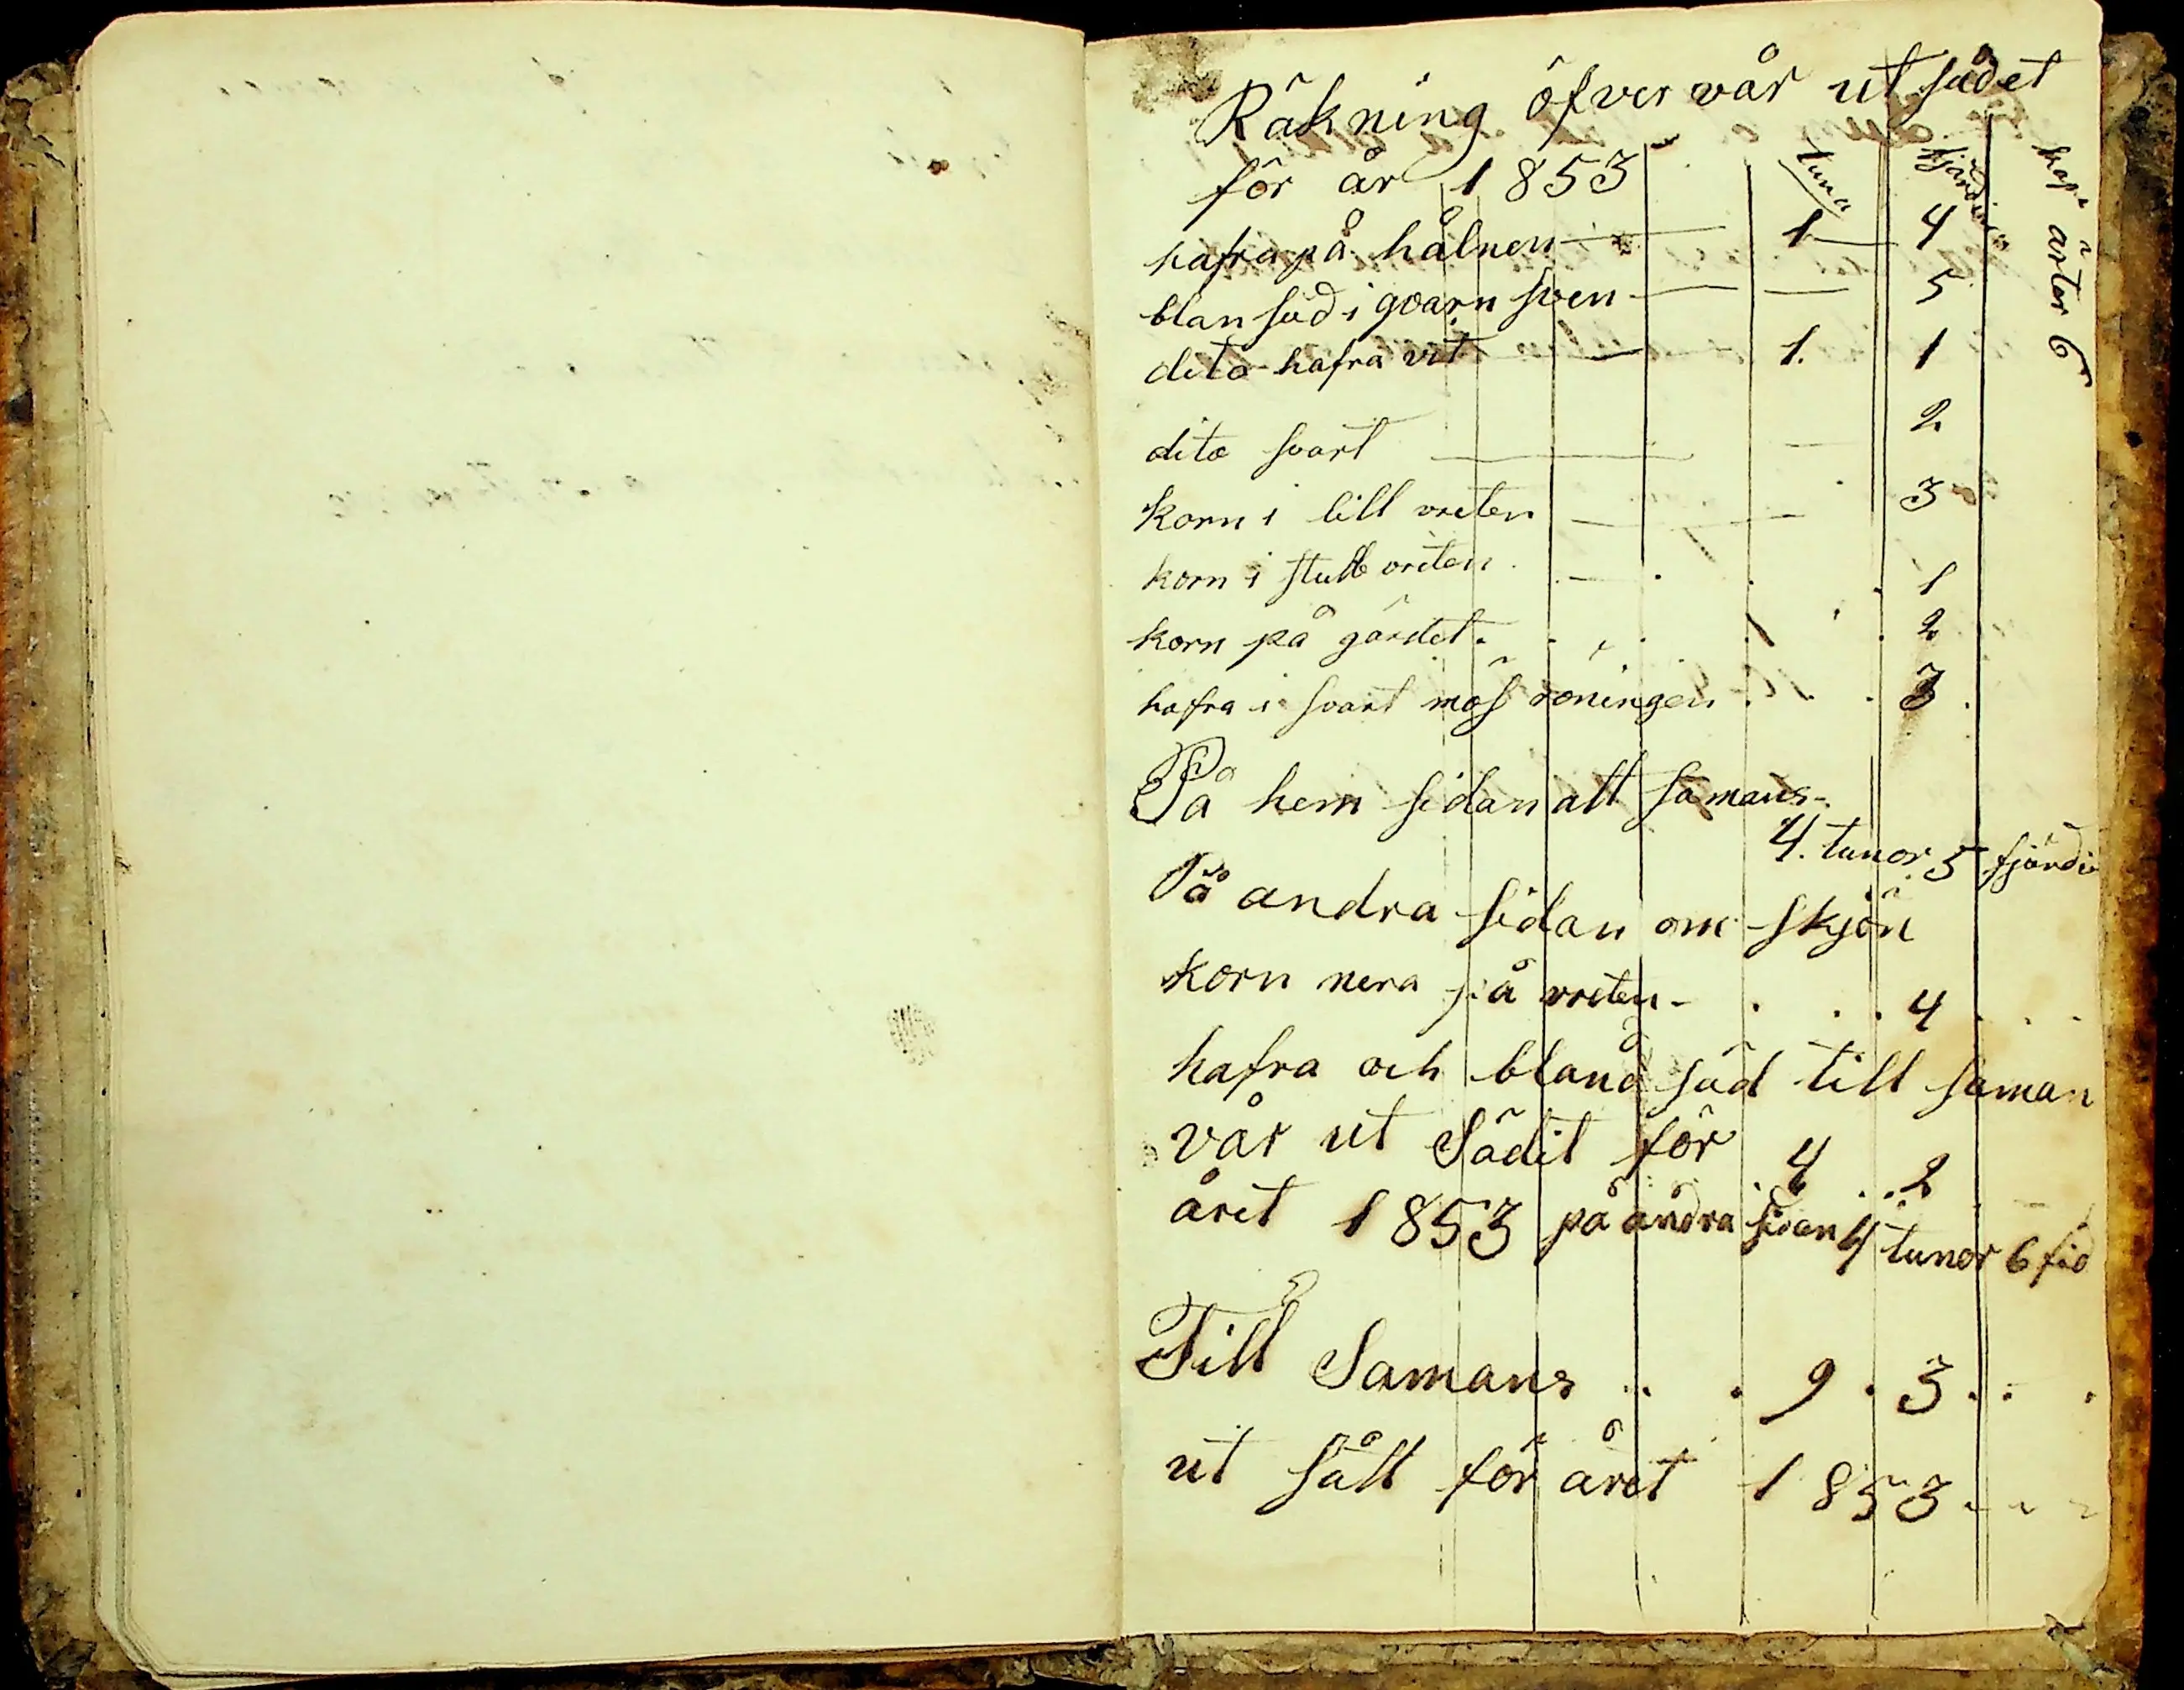 Räkning öfver vår ut sådet
för år 1853
tuna fjärdin
hafra på hålnen 1 4
kap ärter 6
blan såd i qvarn sven 5
dito hafra vit 1. 1
dito svart 2
korn i lill vreten 3
korn i stubb vreten 1
korn på gärdet 1 2
hafra i svart mos röningen 3
På hem sidan alt samans
4. tunor 5 fjärdi
På andra sidan om skjön
korn nera på vreten 4
hafra och bland såd till saman
vår ut Sädit för 4 2
årit 1853 på andra sidan 4 tunor 6 fid
Till Samans 9 3
ut sått för året 1853